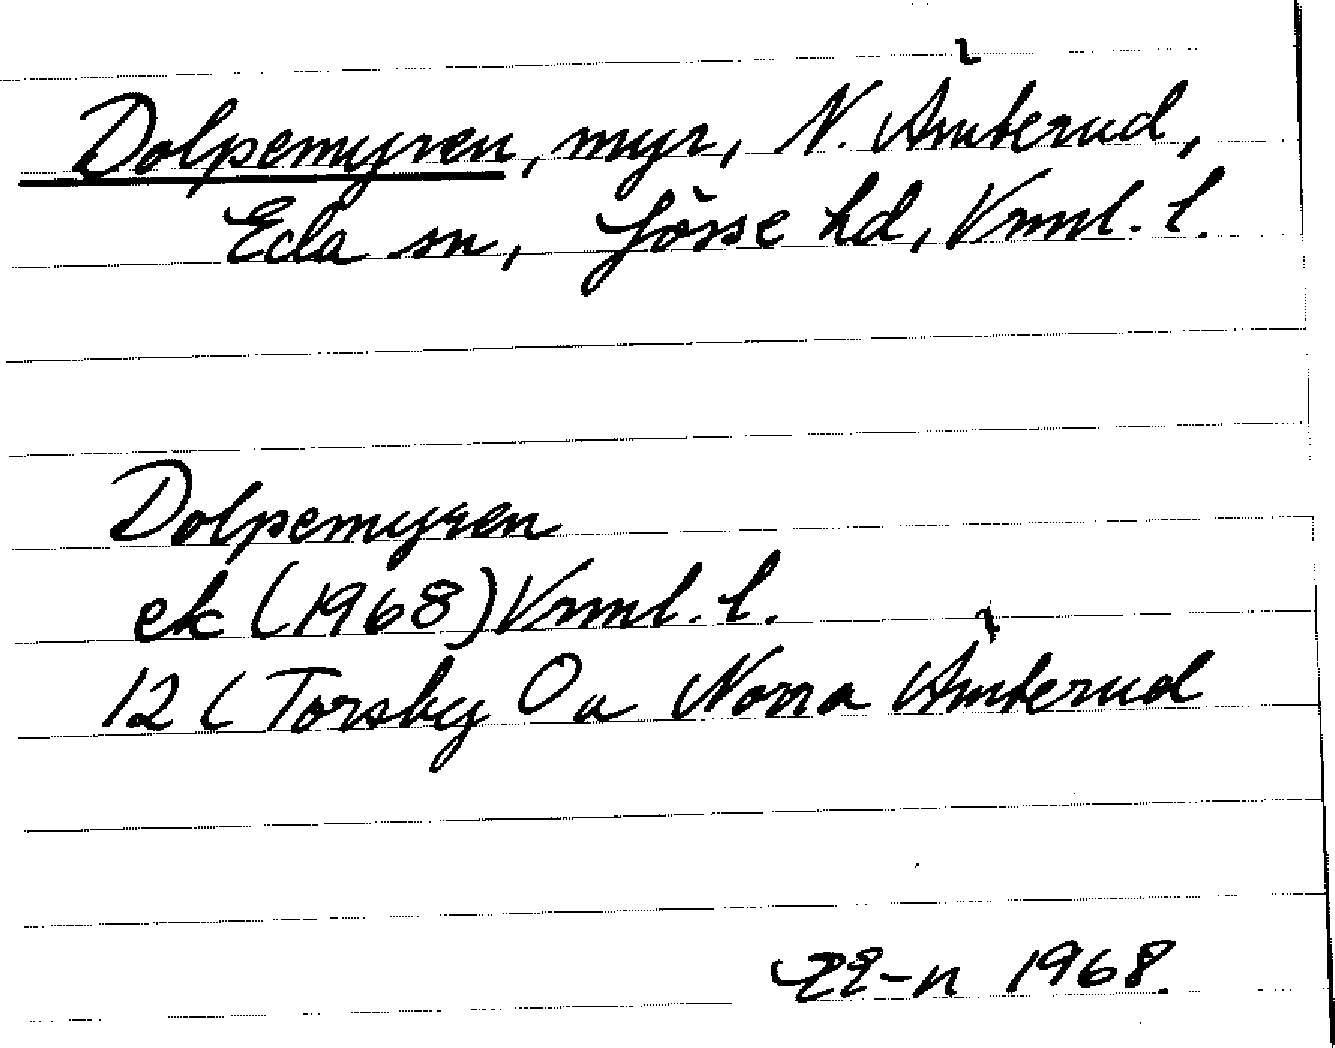 Dolpemyren, myr, N. Åmterud,
Eda sn, Jösse hd, Vrml. l.
Dolpemyren
ek (1968) Vrml. l.
12 C Torsby Oa Norra Åmterud
1968.